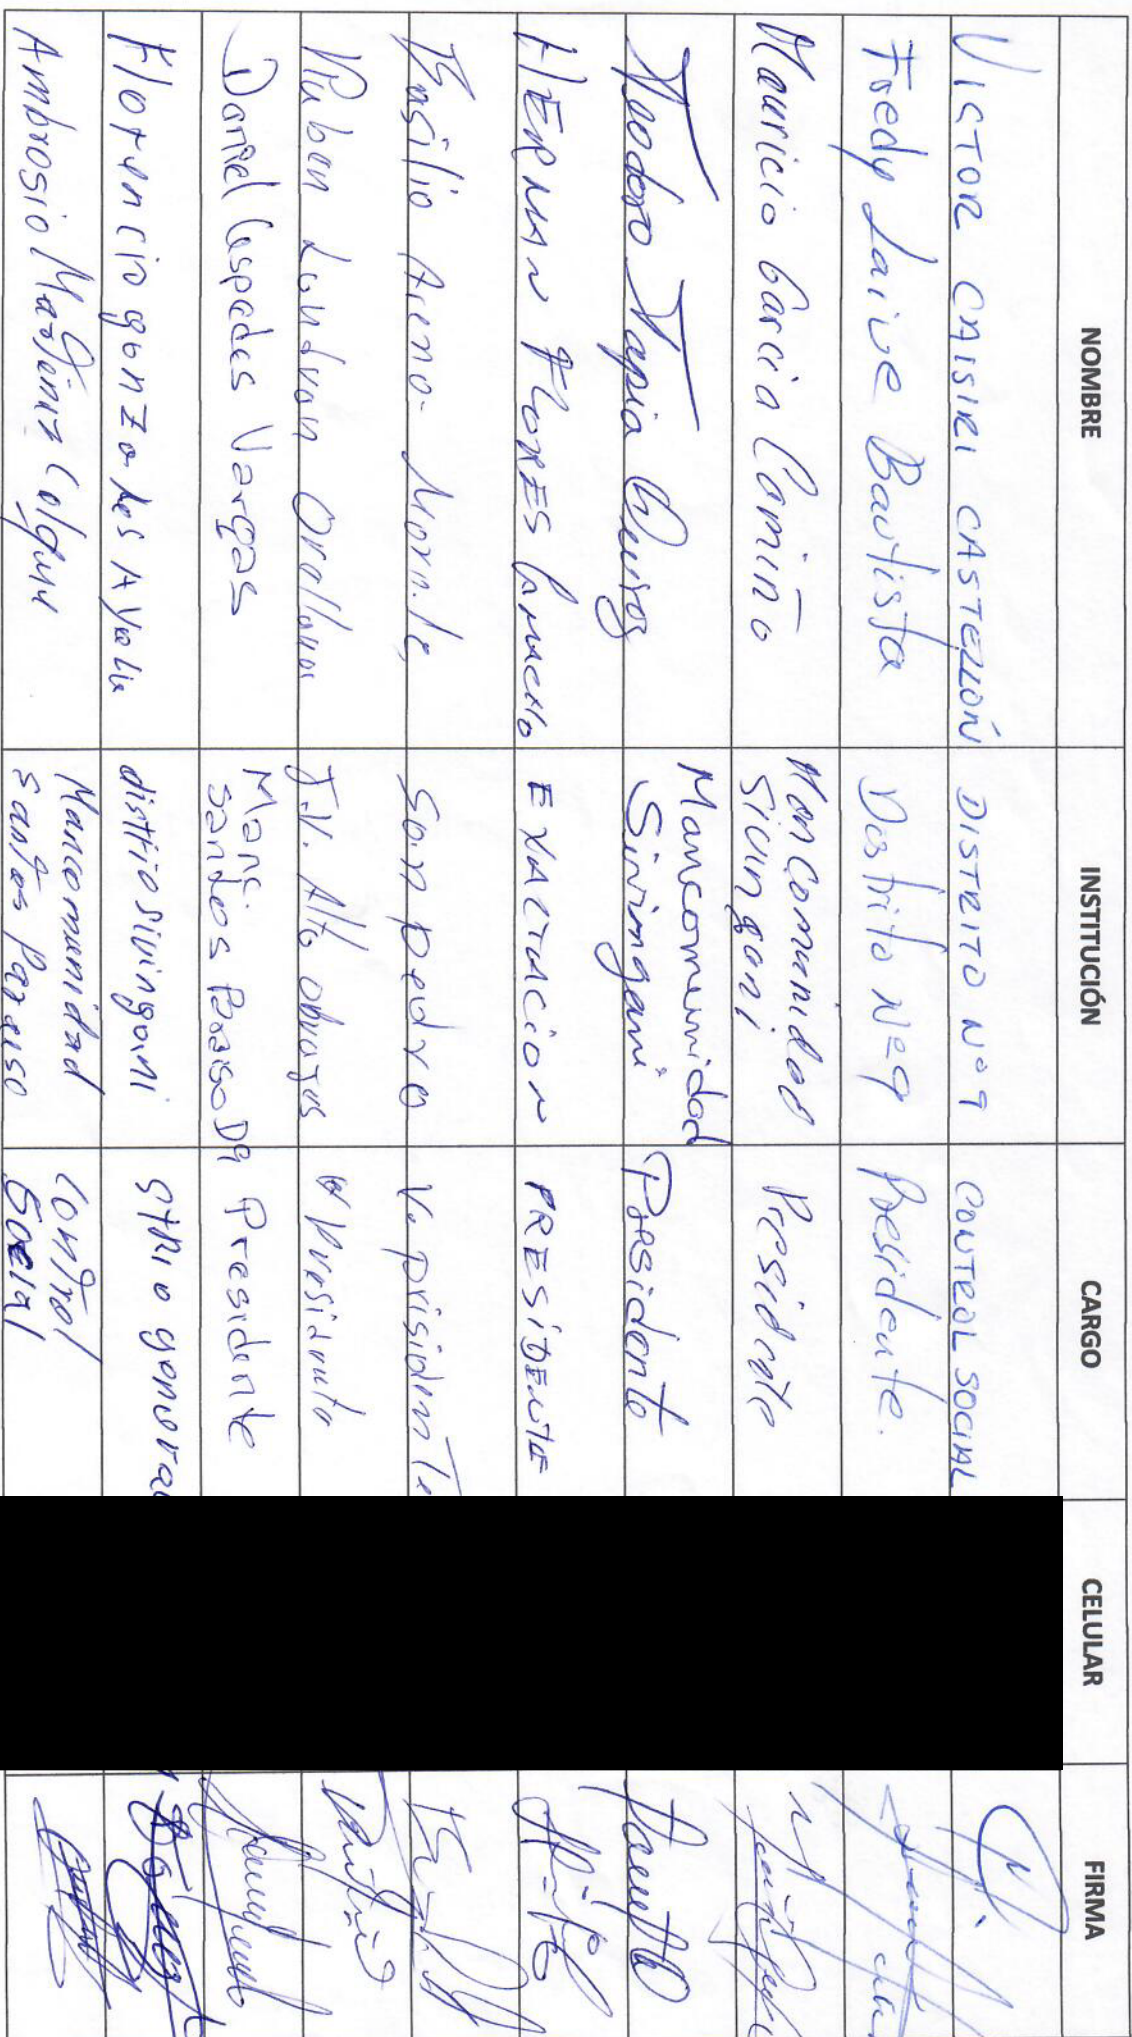 NOMBRE INSTITUCIÓN CARGO CELULAR FIRMA
VICTOR CAISIRI CASTELLÓN DISTRITO Nº 9 CONTROL SOCIAL
Fredy Laive Bautista Distrito Nº 9 Presidente.
Mauricio Garcia Camiño Mancomunidad Sivingani Presidente
Teodoro Tapia Mancomunidad Sivingani Presidente
HERNAN FLORES EXALTACION PRESIDENTE
Basilio San pedro V. prisidente
Ruben Orellana J.V. Alto Presidente
Daniel Cespedes Vargas Manc. Santos Paraiso D9 Presidente
Florencio gonzales Ayala distrio sivingani general
Ambrosio Martinez Colque Mancomunidad Santos Paraiso Control Social